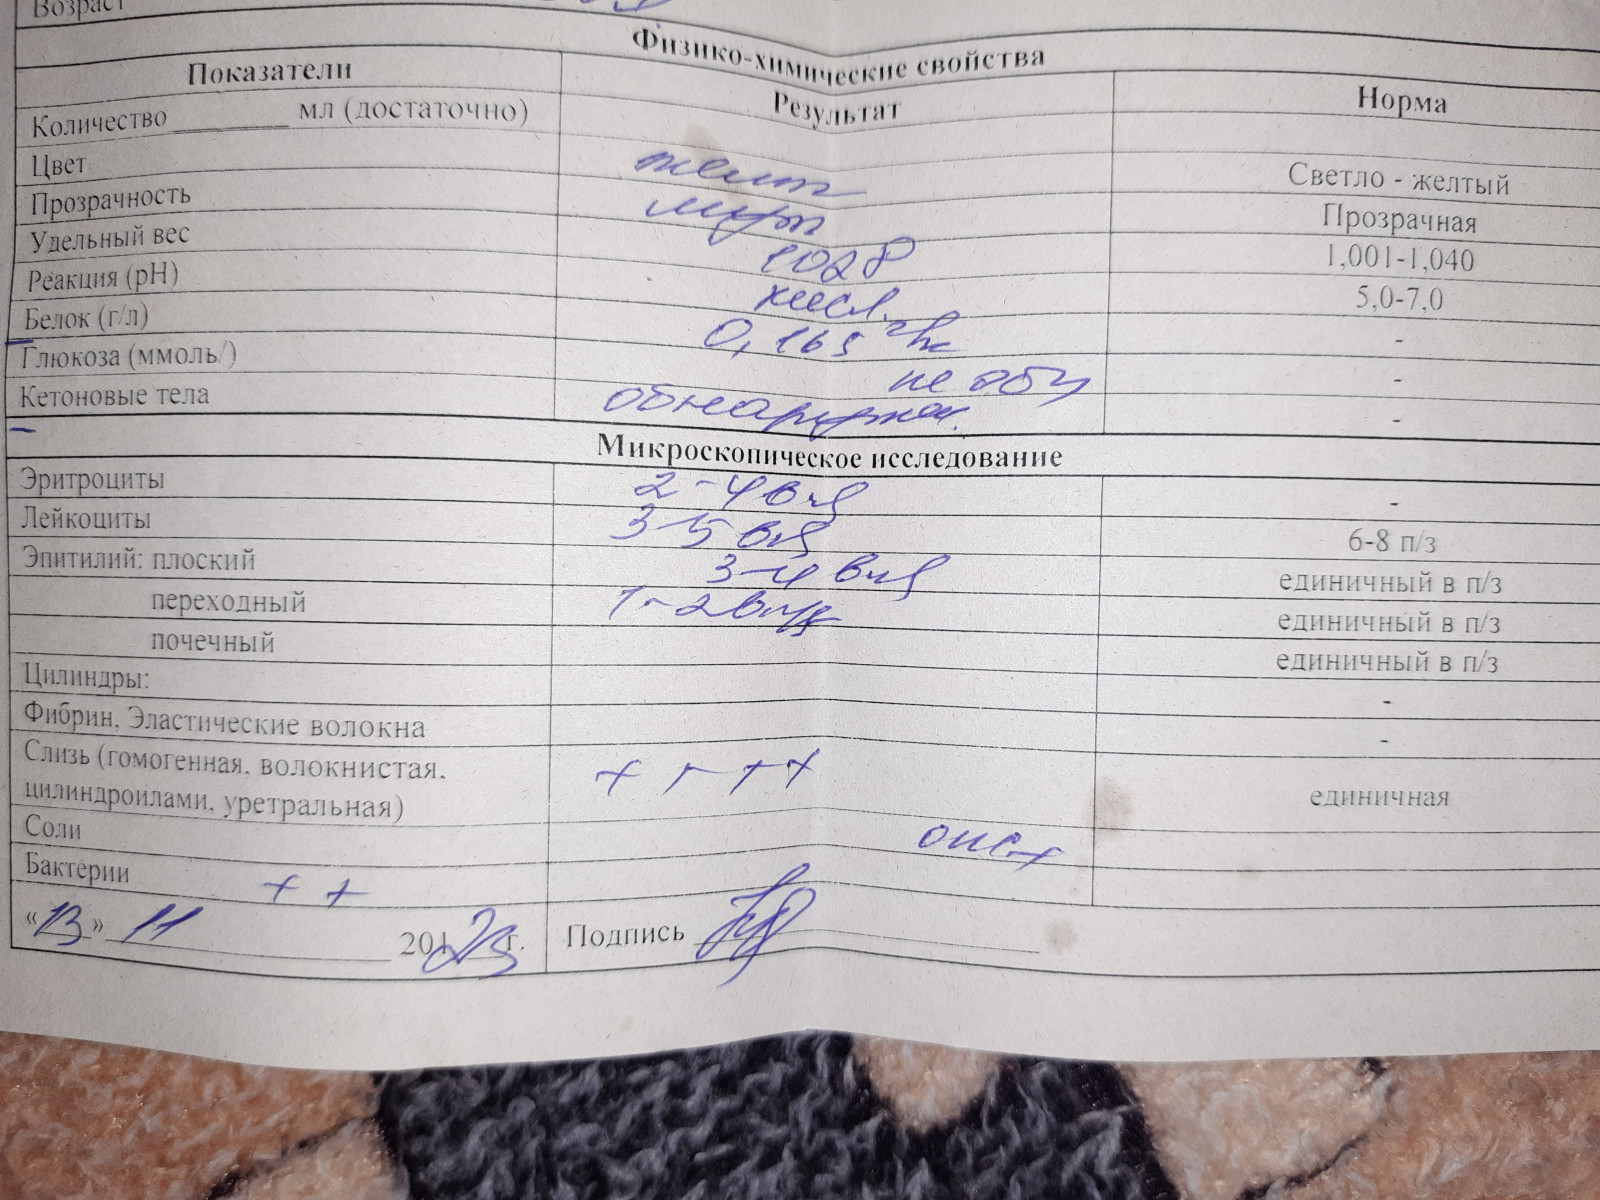 Возраст
Физико-химические свойства
Показатели Результат Норма
Количество ________ мл (достаточно)
Цвет желт Светло - желтый
Прозрачность мутн Прозрачная
Удельный вес 1028 1,001-1,040
Реакция (pH) кисл. 5,0-7,0
Белок (г/л) 0,165 -
Глюкоза (ммоль/) не обн -
Кетоновые тела обнаружен. -
Микроскопическое исследование
Эритроциты 2-4 в п/з -
Лейкоциты 3-5 в п/з 6-8 п/з
Эпитилий: плоский 3-4 в п/з единичный в п/з
переходный 1-2 в п/з единичный в п/з
почечный единичный в п/з
Цилиндры: -
Фибрин, Эластические волокна -
Слизь (гомогенная, волокнистая, ++++ единичная
цилиндроилами, уретральная)
Соли
Бактерии ++
«13» 11 20 г. Подпись